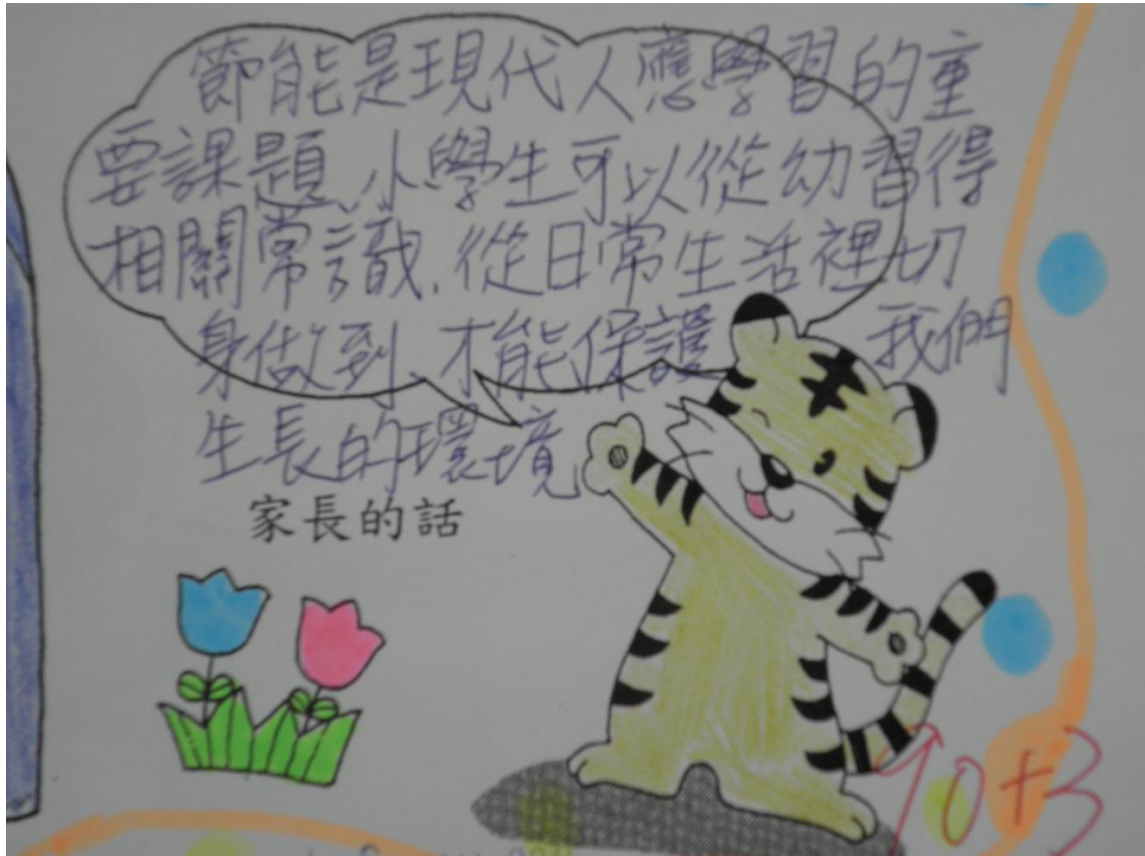 節能是現代人應學習的重
要課題,小學生可以從幼習得
相關常識,從日常生活裡切
身做到,才能保護我們
生長的環境
家長的話
90+3